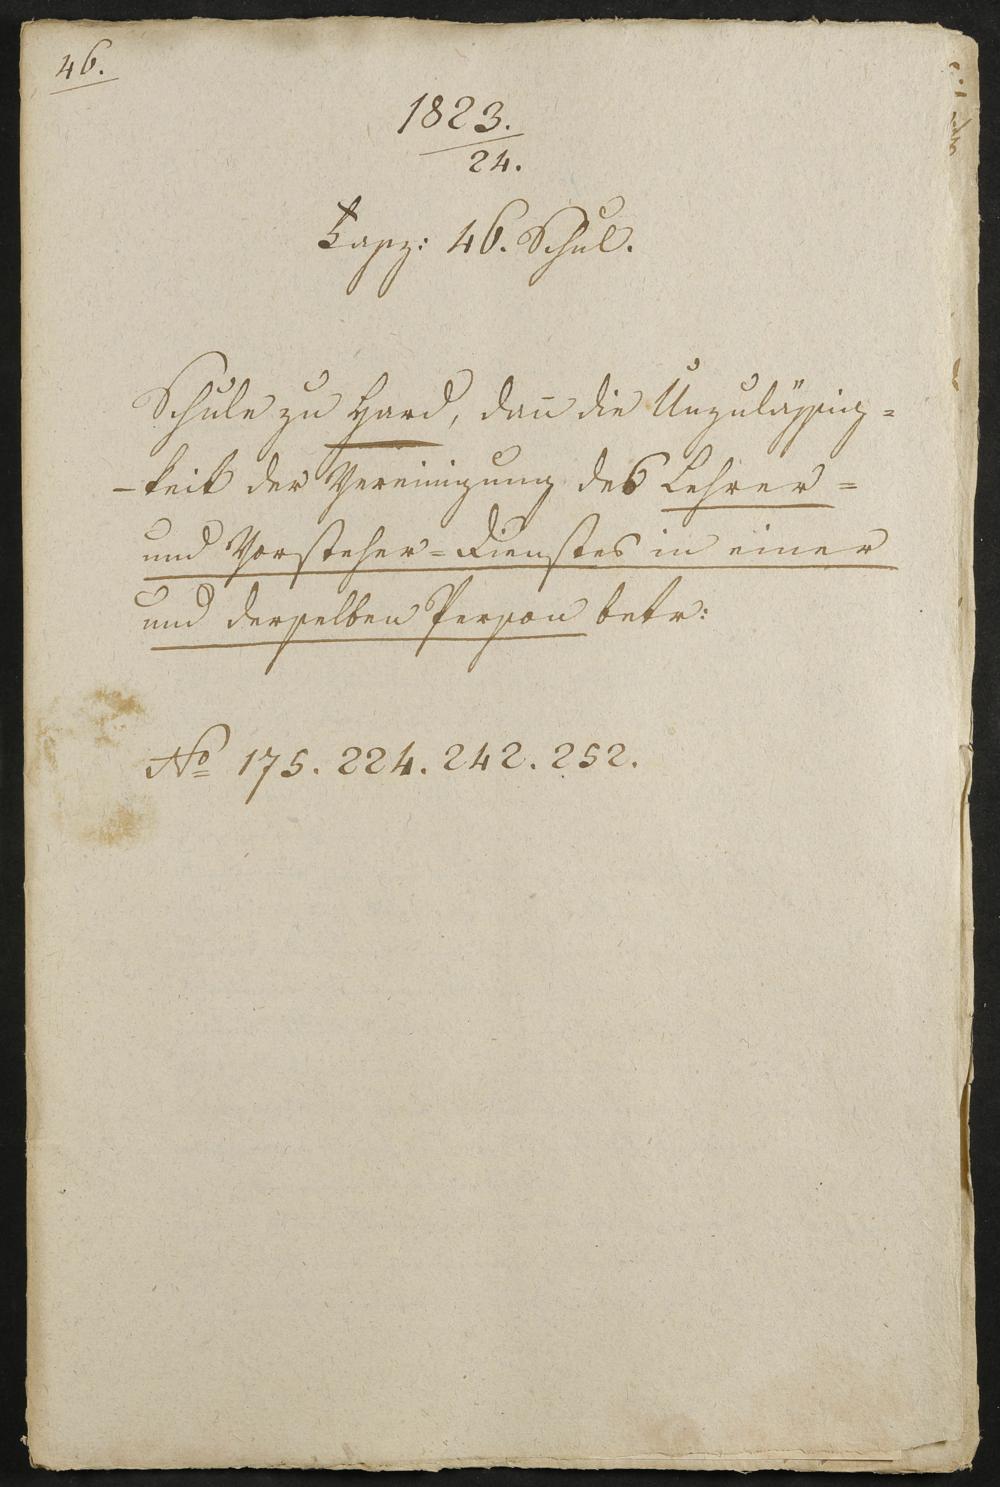 46.
1823.
24.
Fasz: 46. Schul.
Schule zu Hard, dan̄ die Unzulässig=
-keit der Vereinigung des Lehrer=
und Vorsteher=Dienstes in einer
und derselben Person betr:
No 175. 224. 242. 252.